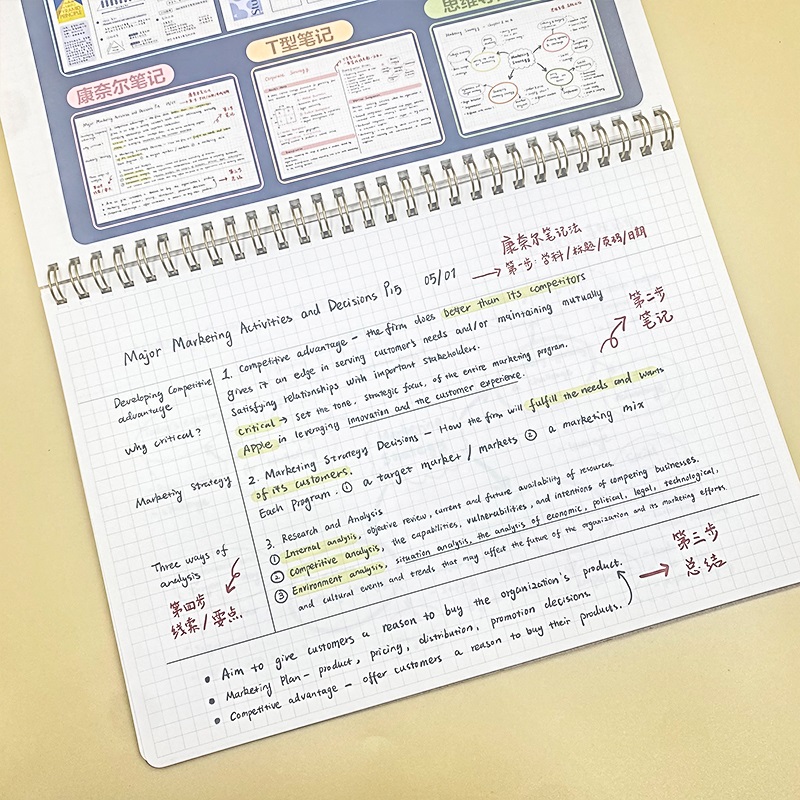 思维导
T型笔记
康奈尔笔记
康奈尔笔记法
第一步: 学科/标题/页码/日期
Major Marketing Activities and Decisions P15 05/01
第二步
笔记
Developing Competitive
advantage
Why critical?
Marketing Strategy
Three ways of
analysis
第四步
线索/要点
1. Competitive advantage - the firm does better than its competitors
gives it an edge in serving customer's needs and/or maintaining mutually
satisfying relationships with important stakeholders.
critical → set the tone, strategic focus, of the entire marketing program.
Apple in leveraging innovation and the customer experience.
2. Marketing Strategy Decisions - How the firm will fulfill the needs and wants
of its customers.
Each program. ① a target market / markets ② a marketing mix
3. Research and Analysis
① Internal analysis, objective review, current and future availability of resources.
② Competitive analysis, the capabilities, vulnerabilities, and intentions of competing businesses.
③ Environment analysis, situation analysis, the analysis of economic, political, legal, technological,
and cultural events and trends that may affect the future of the organization and its marketing efforts.
第三步
总结
• Aim to give customers a reason to buy the organization's product.
• Marketing Plan - product, pricing, distribution, promotion decisions.
• Competitive advantage - offer customers a reason to buy their products.